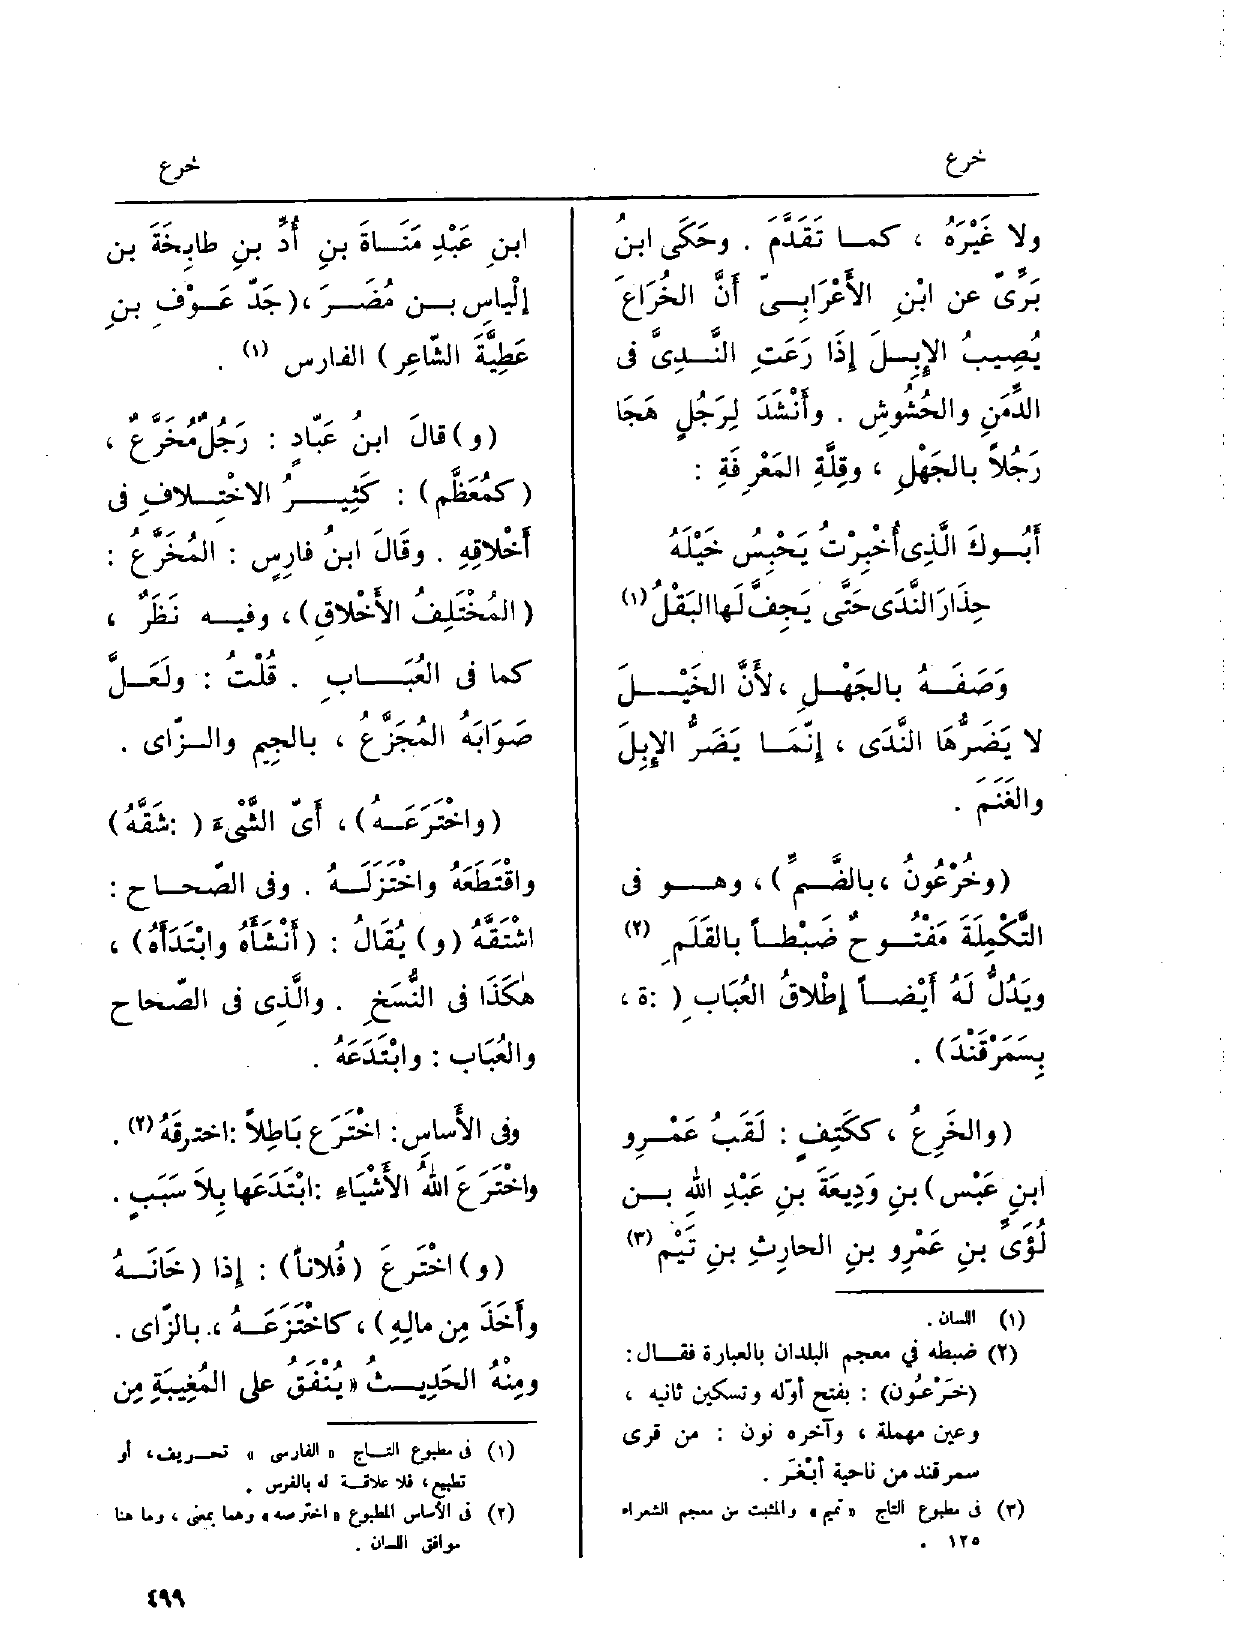 خرع
خرع
ولا غَيْرَهُ ، كمـا تَقَدَّمَ . وحَكَى ابنُ
بَرِّىّ عن ابْنِ الأَعْرَابِـىّ أَنَّ الخُرَاعَ
يُصِيبُ الإِبِـلَ إِذَا رَعَتِ النَّـدِىَّ فى
الدِّمَنِ والحُشُوشِ . وأَنْشَدَ لِرَجُلٍ هَجَا
رَجُلاً بالجَهْلِ ، وقِلَّةِ المَعْرِفَةِ :
أَبُـوكَ الَّذِى أُخْبِرْتُ يَحْبِسُ خَيْلَهُ
حِذَارَ النَّدَى حَتَّى يَجِفَّ لَها البَقْلُ (١)
وَصَفَـهُ بالجَهْـلِ ، لأَنَّ الخَيْـلَ
لا يَضَرُّهَا النَّدَى ، إِنَّمَـا يَضَرُّ الإِبِلَ
والغَنَمَ .
(وخُرْعُونُ ، بالضَّـمِّ) ، وهـو فى
التَّكْمِلَةَ مَفْتُـوحٌ ضَبْطـاً بالقَلَمِ (٢)
ويَدُلُّ لَهُ أَيْضـاً إِطْلاقُ العُبَابِ ( :ة ،
بِسَمَرْقَنْدَ) .
(والخَرِعُ ، ككَتِفٍ : لَقَبُ عَمْـرِو
ابنِ عَبْس) بنِ وَدِيعَةَ بنِ عَبْدِ اللهِ بـن
لُؤَىِّ بنِ عَمْرِو بنِ الحارِثِ بنِ تَيْمِ (٣)
(١) اللسان .
(٢) ضبطه في معجم البلدان بالعبارة فقـال :
(خَرْعُون) : بفتح أوّله وتسكين ثانيه ،
وعين مهملة ، وآخره نون : من قرى
سمرقند من ناحية أَبْغَرَ .
(٣) فى مطبوع التاج « تميم » والمثبت من معجم الشعراء
١٢٥ .
ابنِ عَبْدِ مَنَـاةَ بنِ أُدِّ بنِ طابِخَةَ بن
إلْياسِ بـن مُضَـرَ ، (جَدّ عَـوْفِ بنِ
عَطِيَّةَ الشّاعِرِ) الفارس (١) .
(و) قالَ ابنُ عَبّادٍ : رَجُلٌ مُخَرَّعٌ ،
(كمُعَظَّمٍ) : كَثِيـرُ الاخْتِـلافِ فى
أَخْلاقِهِ . وقَالَ ابنُ فارِسٍ : المُخَرَّعُ :
(المُخْتَلِفُ الأَخْلاقِ) ، وفيـه نَظَرٌ ،
كما فى العُبَـابِ . قُلْتُ : ولَعَـلَّ
صَوَابَهُ المُجَزَّعُ ، بالجِيمِ والـزّاى .
(واخْتَرَعَـهُ) ، أَىّ الشَّىْءَ ( :شَقَّهُ)
واقْتَطَعَهُ واخْتَزَلَـهُ . وفى الصّحـاح :
اشْتَقَّهُ (و) يُقَالُ : (أَنْشَأَهُ وابْتَدَأَهُ) ،
هٰكَذَا فى النُّسَخِ . والَّذِى فى الصّحاح
والعُبَاب : وابْتَدَعَهُ .
وفى الأَساسِ : اخْتَرَع بَاطِلاً :اخترقَهُ (٢) .
واخْتَرَعَ اللهُ الأَشْيَاءَ :ابْتَدَعَها بِلاَ سَبَبٍ .
(و) اخْتَرَعَ (فُلاناً) : إذا (خَانَـهُ
وأَخَذَ مِن مالِهِ) ، كاخْتَزَعَـهُ ، بالزّاى .
ومِنْهُ الحَدِيـثُ «يُنْفَقُ على المُغِيبَةِ مِن
(١) فى مطبوع التـاج « الفارسى » تحـريف ، أو
تطبيع ، فلا علاقـة له بالفرس .
(٢) فى الأساس المطبوع « اخترصه » وهما بمعنى ، وما هنا
موافق اللسان .
٤٩٩